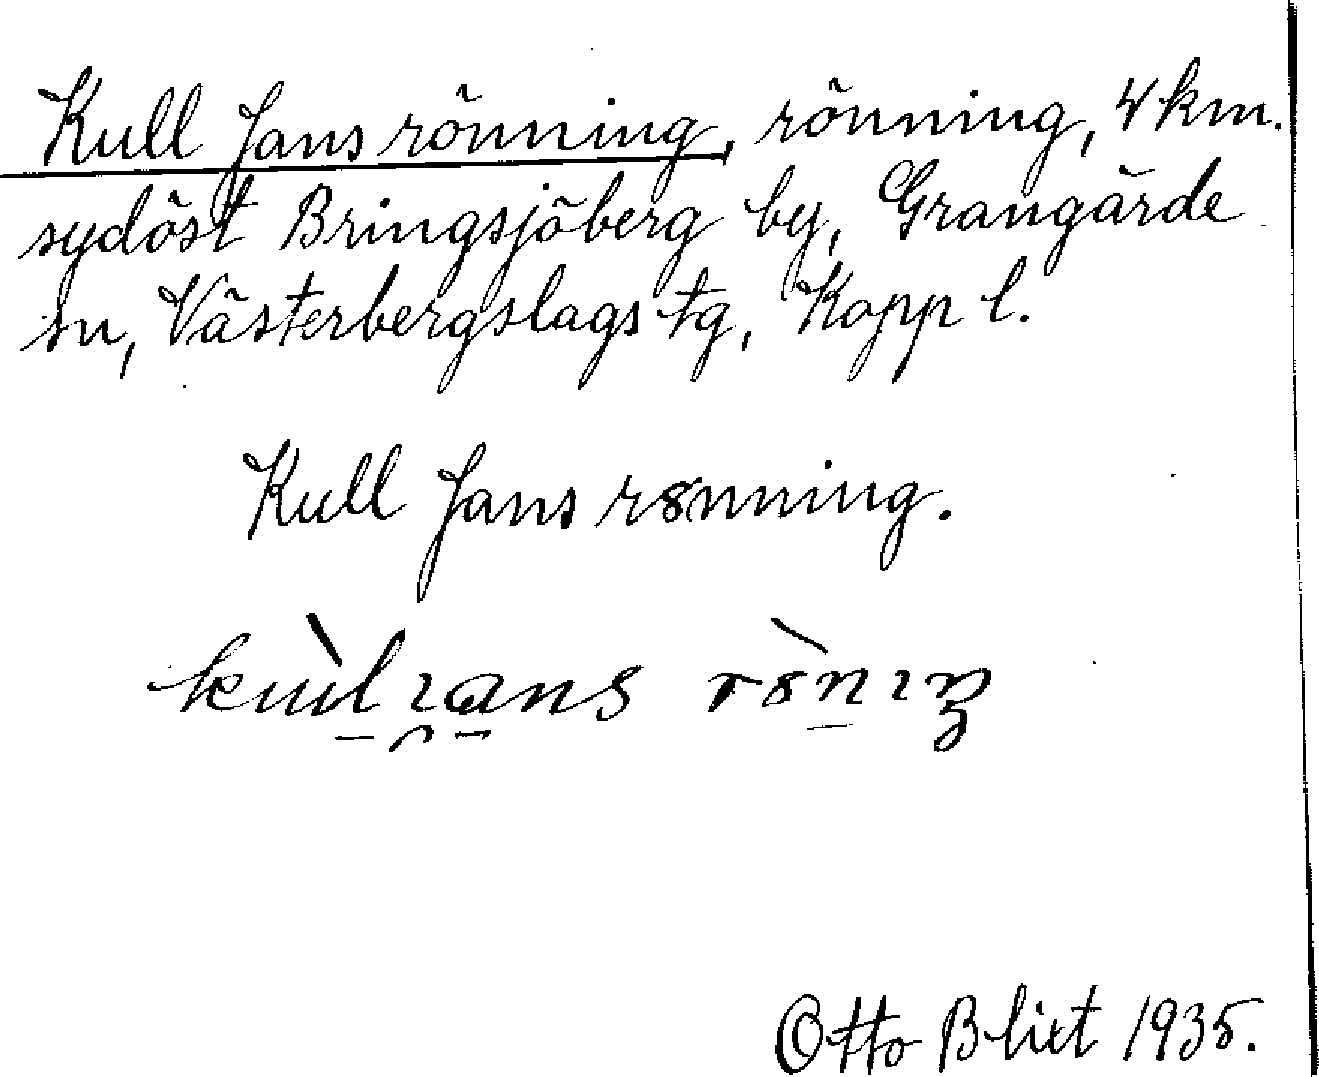 Kull Jans rönning, rönning, 4 km.
sydöst Bringsjöberg by, Grangärde
sn, Västerbergslags tg, Kopp l.
Kull Jans rönning.
Otto Blixt 1935.